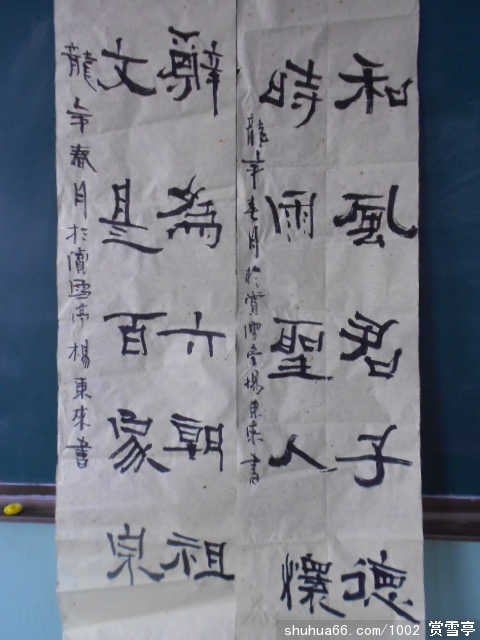 和風君子德
時雨聖人懷
龍年春月於賞雪堂楊東來書
辭為六朝祖
文是百家宗
龍年春月於賞雪亭楊東來書
shuhua66.com/1002 赏雪亭